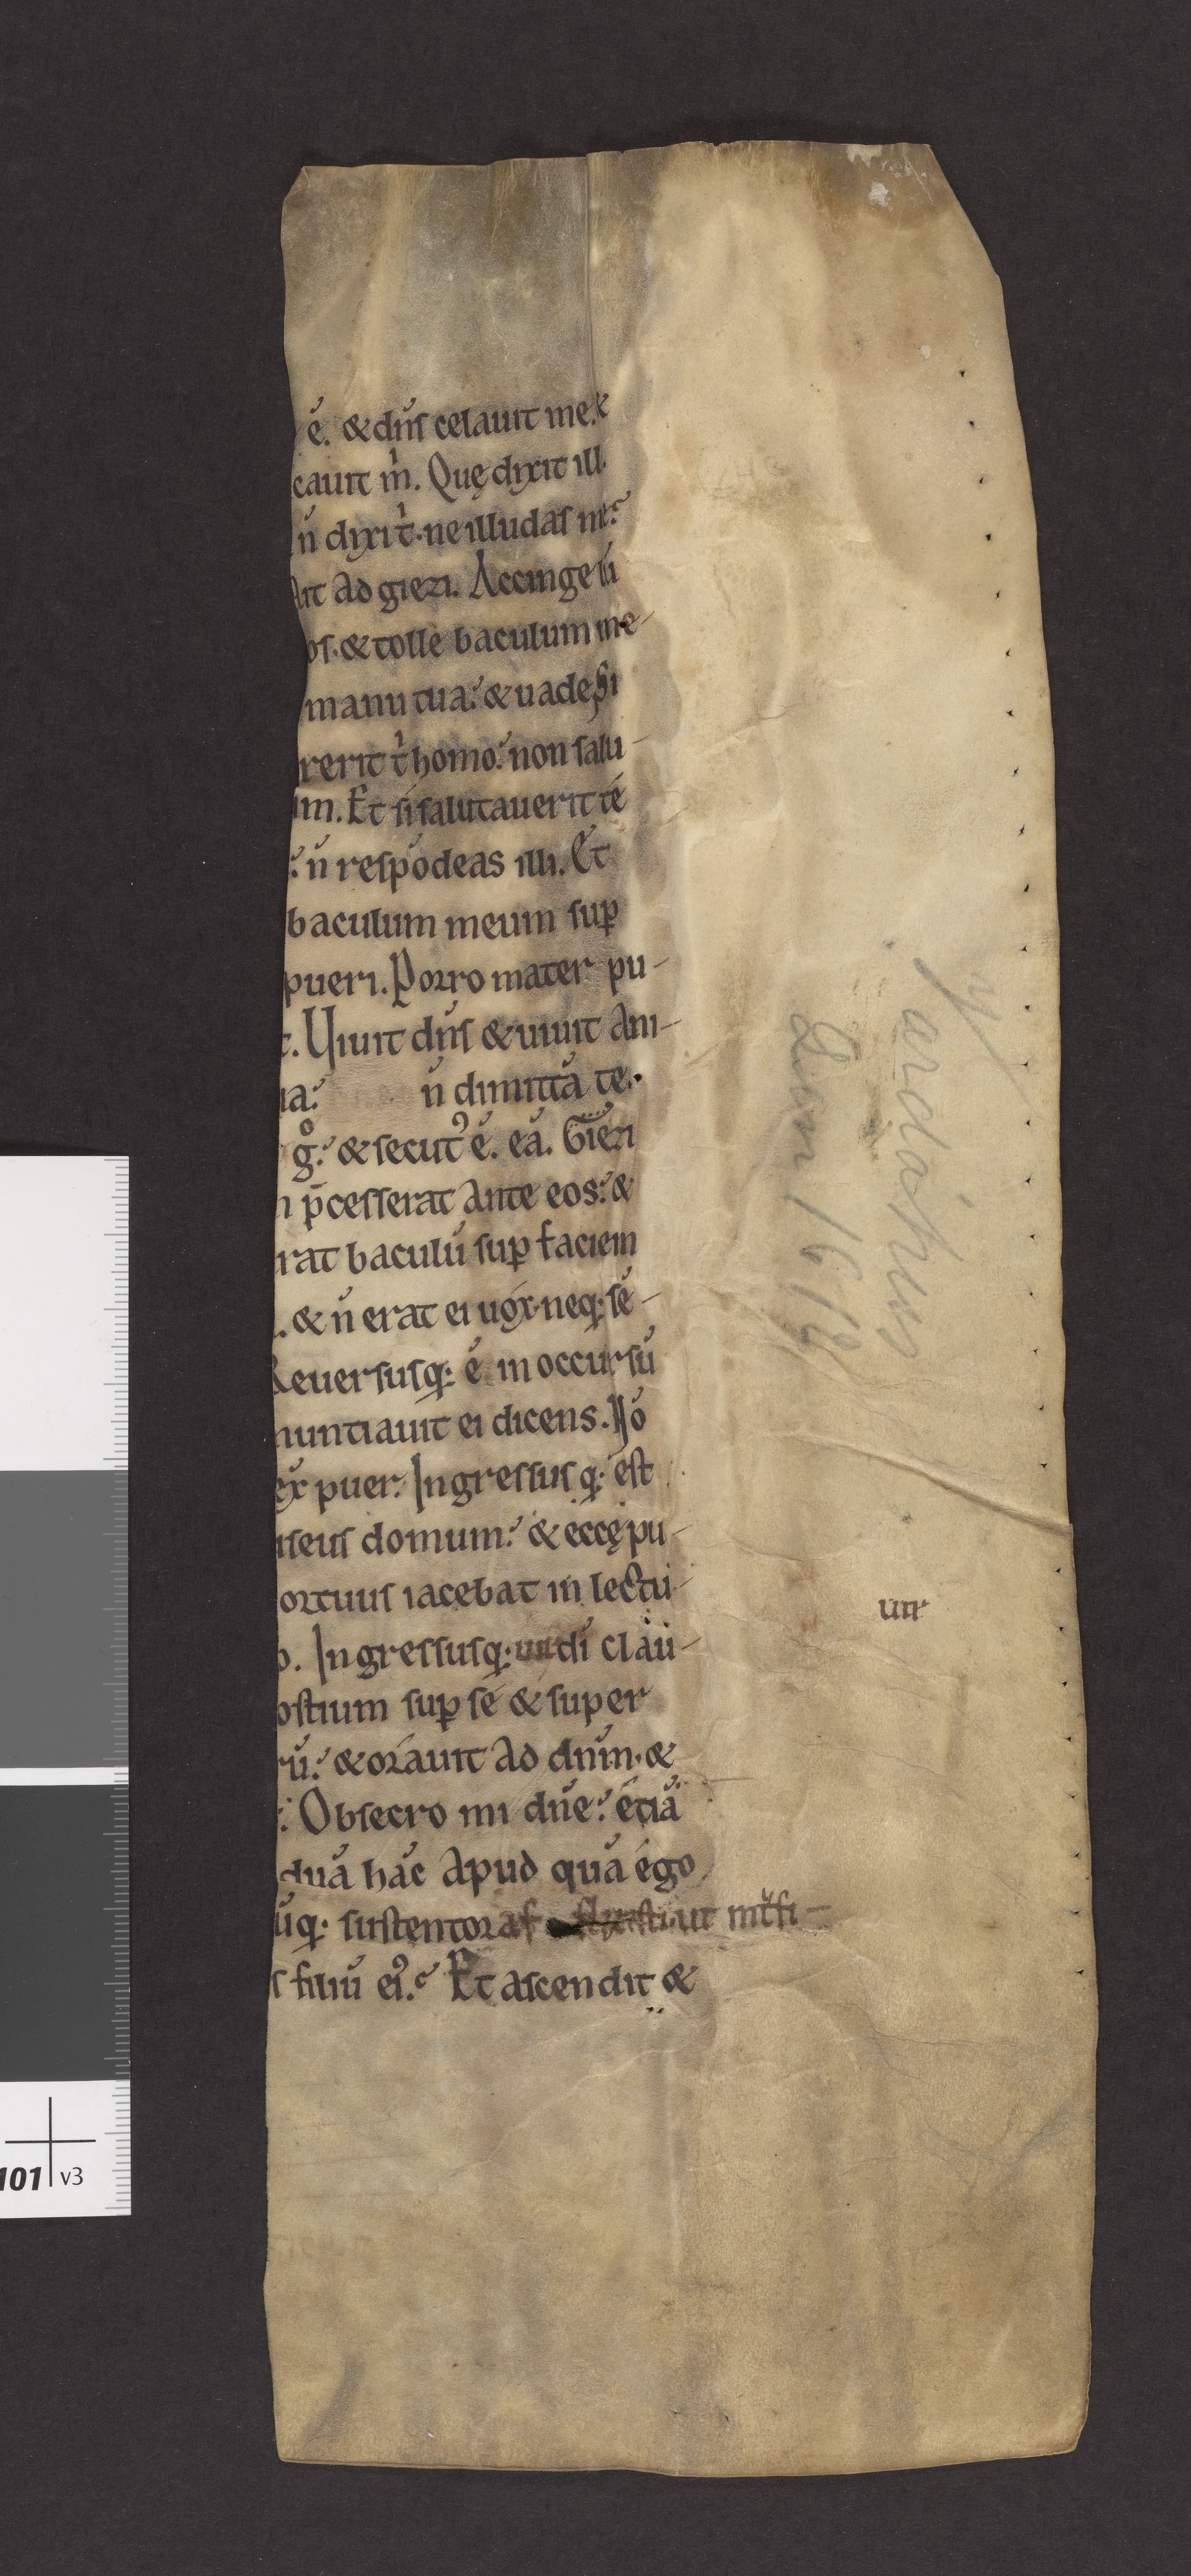 ē. & dn̄s celauit me. &
cauit m̄. Quę dixit ill
n̄ dixi t̄. ne illudas me?
Ait ad giezi. Accinge lū
os. & tolle baculum me-
manu tua. & uade. Si
rerit t̄ homo. non salu-
im. Et si salutauerit te
n̄ respōdeas illi. Et
baculum meum sup̄
pueri. Porro mater pu-
t. Uiuit dn̄s & uiuit ani-
ua. n̄ dimittā te.
g̊. & secut᾿ ē. eā. Giezi
p̄cesserat ante eos. &
rat baculū sup̄ faciem
. & n̄ erat ei uox. neq; sē-
Reuersusq; ē in occursū
nuntiauit ei dicens. Nō
ex puer. Ingressus q; est
iseus domum. & ecce pu-
ortuus iacebat in lectu-
o. Ingressusq; di clau-
ostium sup̄ se & super
rū. & orauit ad dn̄m. &
Obsecro mi dn̄e. etiā
duā hāc apud quā ego
uq; sustentor ut mt̄fi-
s filiū ei᾿. Et ascendit &
un
Yardähns
Lun 1618